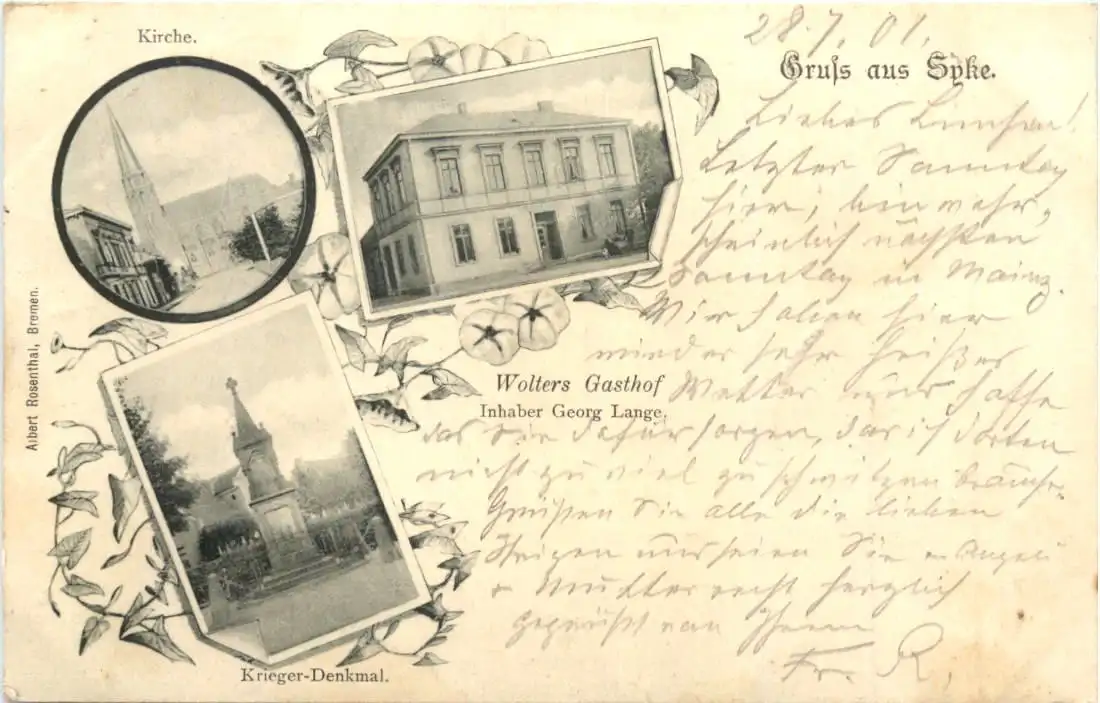 Kirche.
28.7.01.
Gruss aus Syke.
Liebes
Letzter Sonntag
hier, hinwahr-
scheinlich nächsten
Sonntag in Mainz.
Wir haben hier
wieder sehr heißes
Wolters Gasthof
Inhaber Georg Lange.
Wetter hoffe
das Sie dafür sorgen, das ich dorten
nicht zu viel zu schwitzen brauche.
Grüßen Sie alle die lieben
seien Sie
+ Mutter recht herzlich
gegrüßt von Ihrem
Fr. R.
Krieger-Denkmal.
Albert Rosenthal, Bremen.